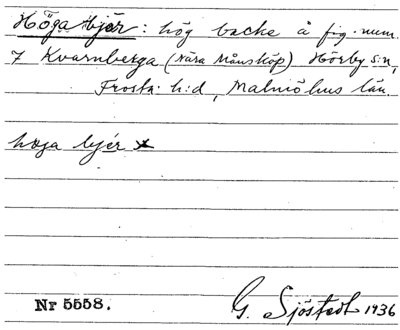 Höga bjér: hög backe å fig. num.
7 Kvarnberga (nära Månstorp) Hörby s:n,
Frosta h:d, Malmöhus län.
höga bjér x
Nr 5558.
G. Sjöstedt 1936